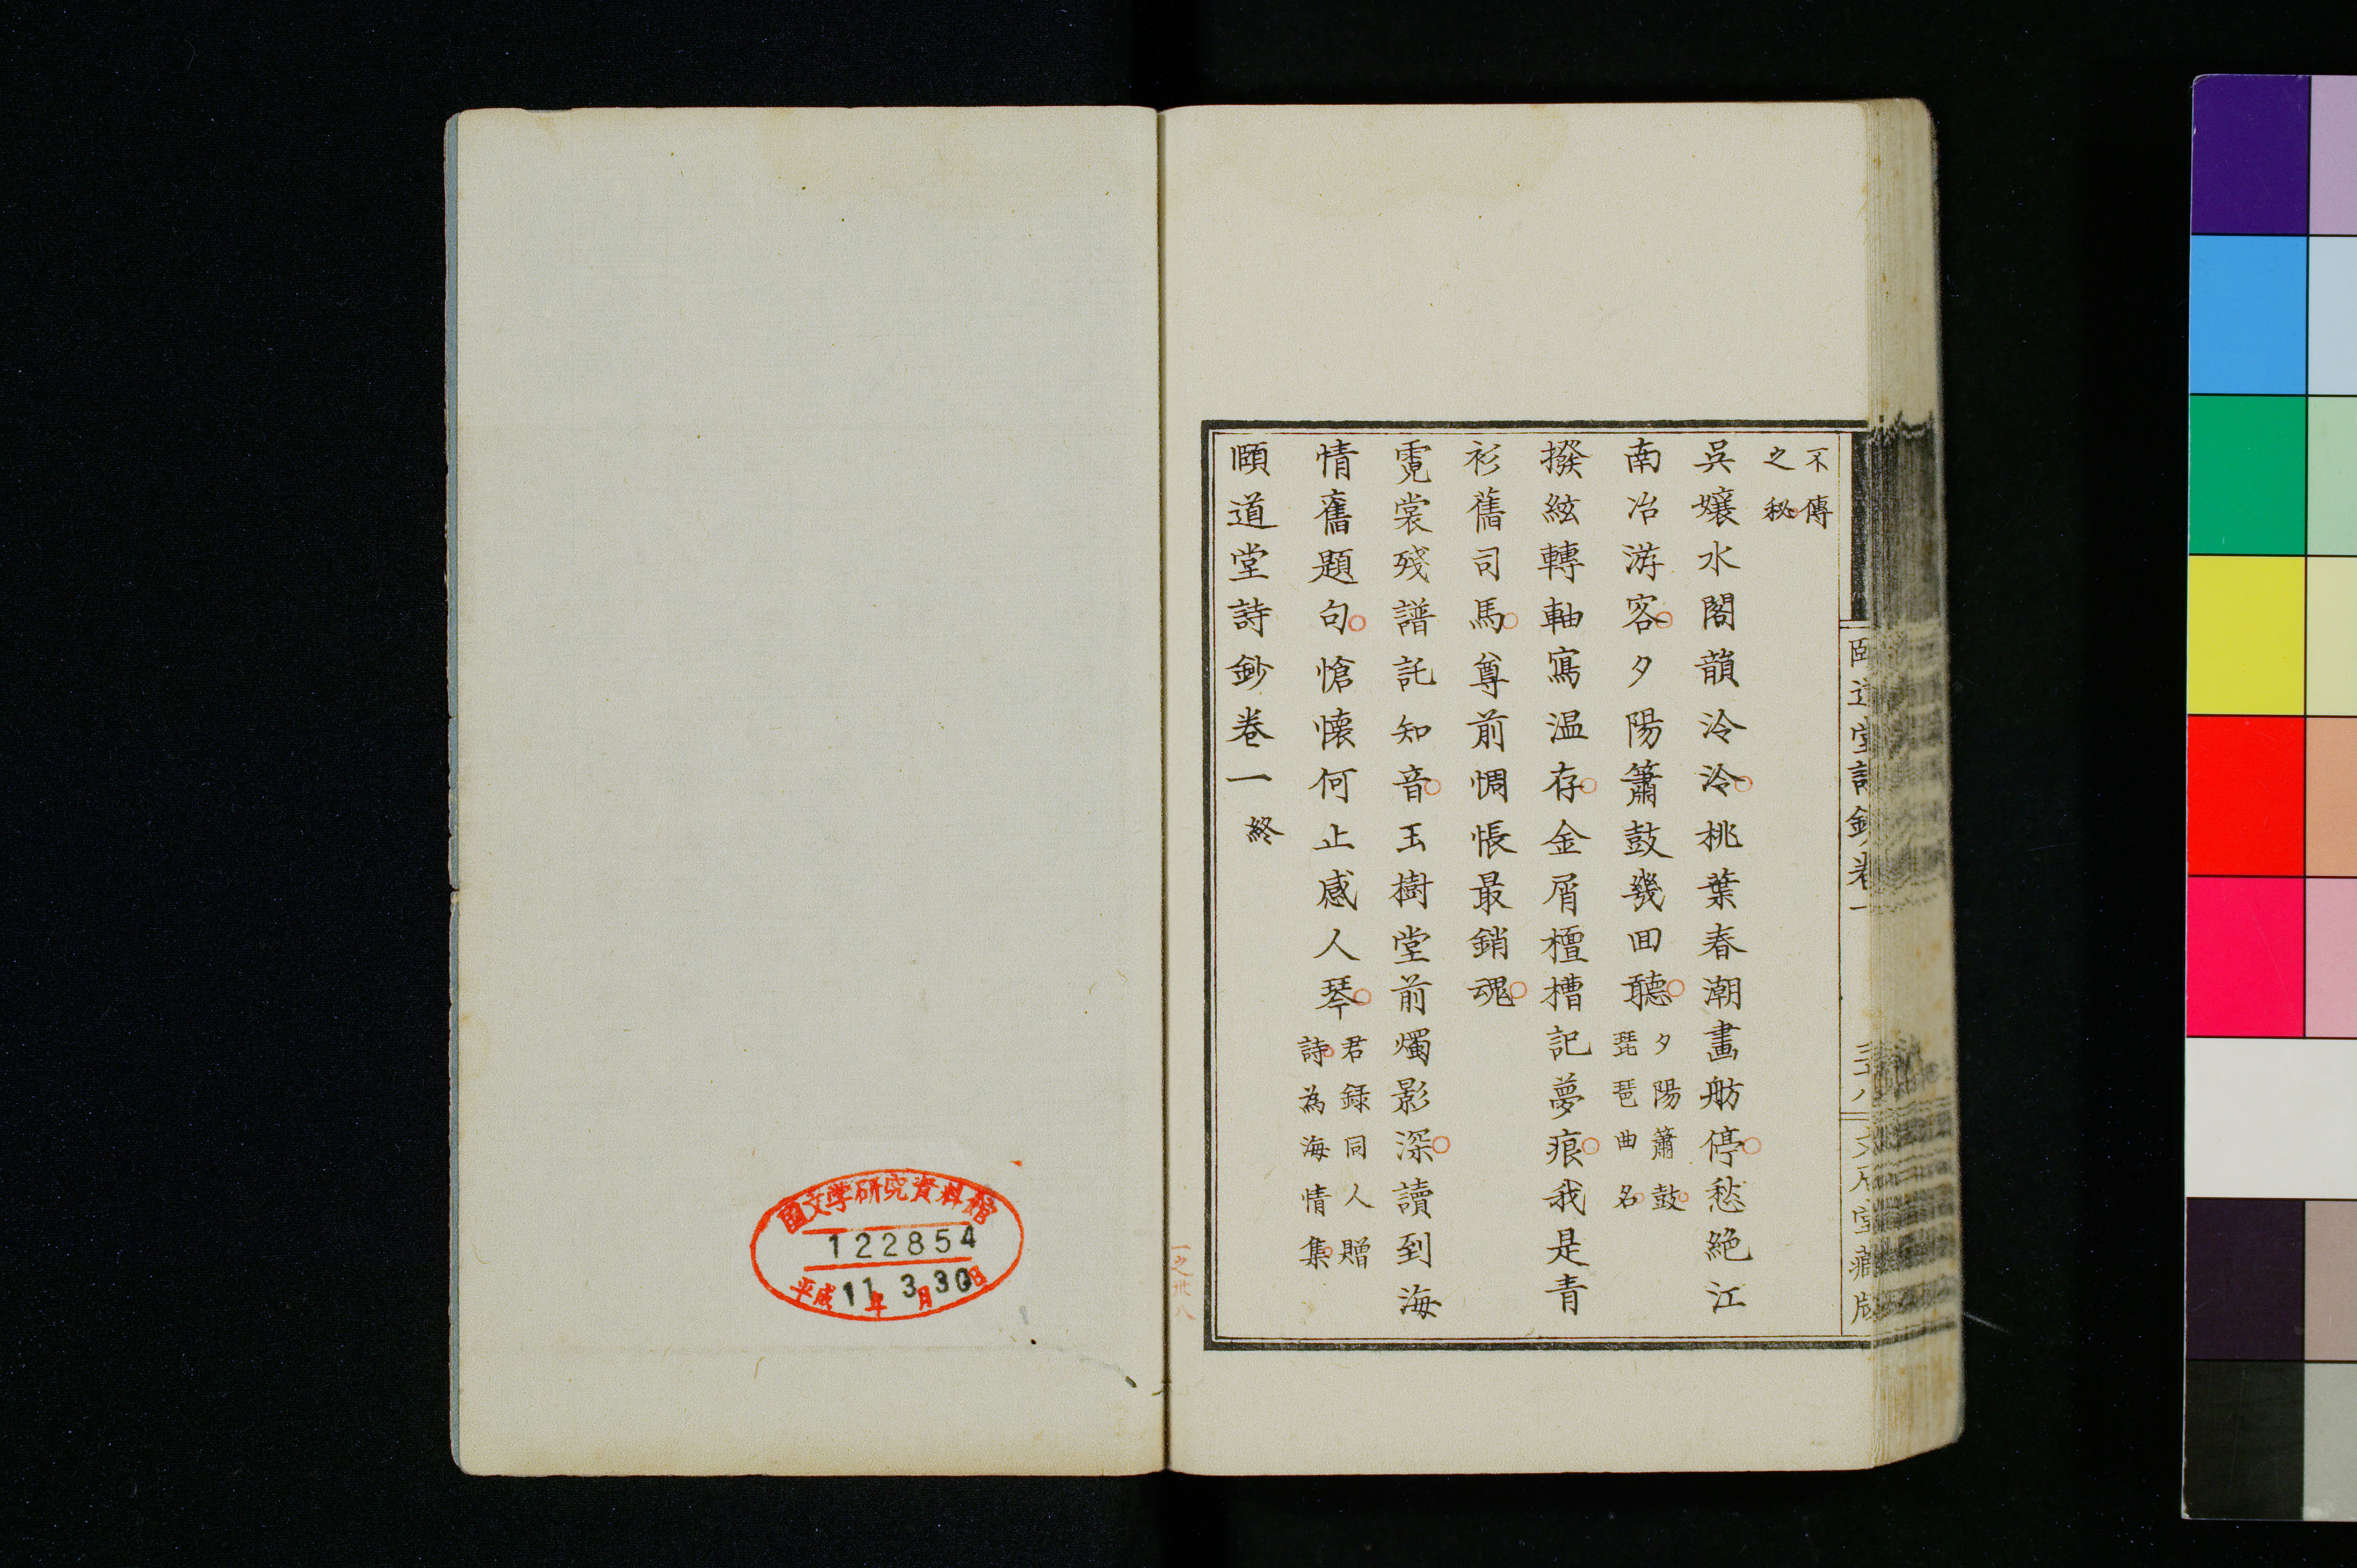 不傳
之秘
吳孃水閣韻泠泠桃葉春潮畫舫停愁絕江
南冶游客夕陽簫鼓幾回聽
夕陽簫鼓
琵琶曲名
撥絃轉軸寫温存金屑檀槽記夢痕我是青
衫舊司馬尊前惆悵最銷魂
霓裳殘譜託知音玉樹堂前燭影深讀到海
情舊題句愴懷何止感人琴
君録同人贈
詩為海情集
頤道堂詩鈔卷一終
一之卅八
國文学研究資料館
122854
平成11年3月30日